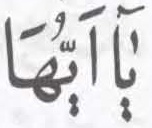 يٰۤاَيُّهَا